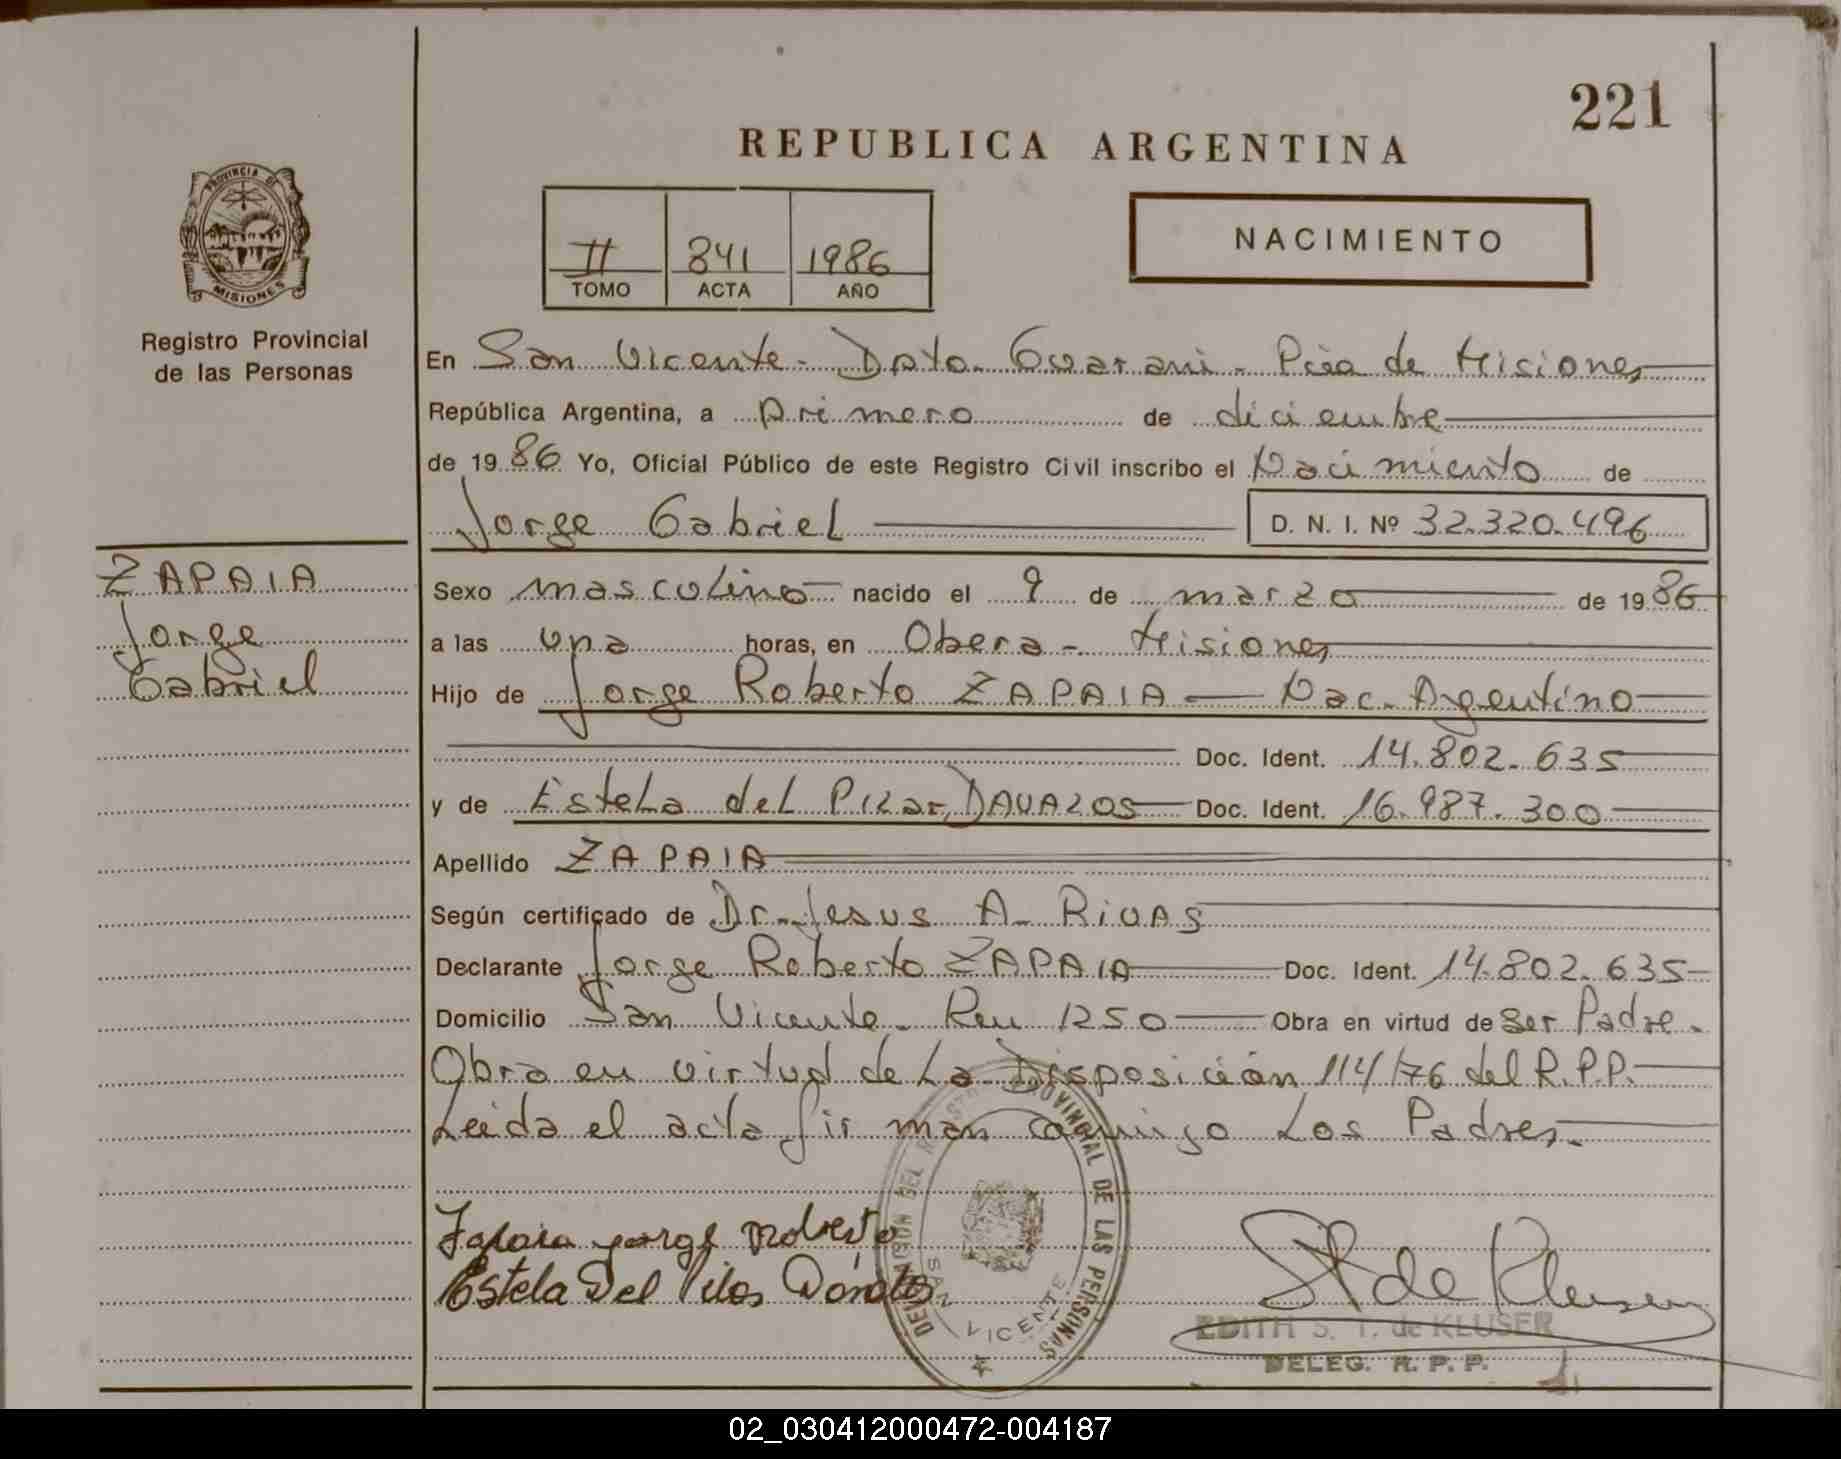 221
REPUBLICA ARGENTINA
PROVINCIA DE
MISIONES
Registro Provincial
de las Personas
II 841 1986
TOMO ACTA AÑO
NACIMIENTO
En San Vicente - Dpto. Guarani - Pcia de Misiones
República Argentina, a primero de diciembre
de 1986 Yo, Oficial Público de este Registro Civil inscribo el Nacimiento de
Jorge Gabriel D. N. I. Nº 32.320.496
ZAPAIA
Jorge
Gabriel
Sexo masculino nacido el 9 de marzo de 1986
a las una horas, en Obera - Misiones
Hijo de Jorge Roberto ZAPAIA - Nac. Argentino
Doc. Ident. 14.802.635
y de Estela del Pilar DAVALOS Doc. Ident. 16.987.300
Apellido ZAPAIA
Según certificado de Dr. Jesus A. RIVAS
Declarante Jorge Roberto ZAPAIA Doc. Ident. 14.802.635
Domicilio San Vicente - 1250 Obra en virtud de Ser Padre.
Obra en virtud de La Disposición 114/76 del R.P.P.
Leida el acta firman conmigo Los Padres.
Zapaia Jorge Roberto
Estela Del Pilar
DEL PROVINCIAL DE LAS PERSONAS
SAN VICENTE
S T de Kluser
EDITH S. T. de KLUSER
DELEG. R. P. P.
02_030412000472-004187